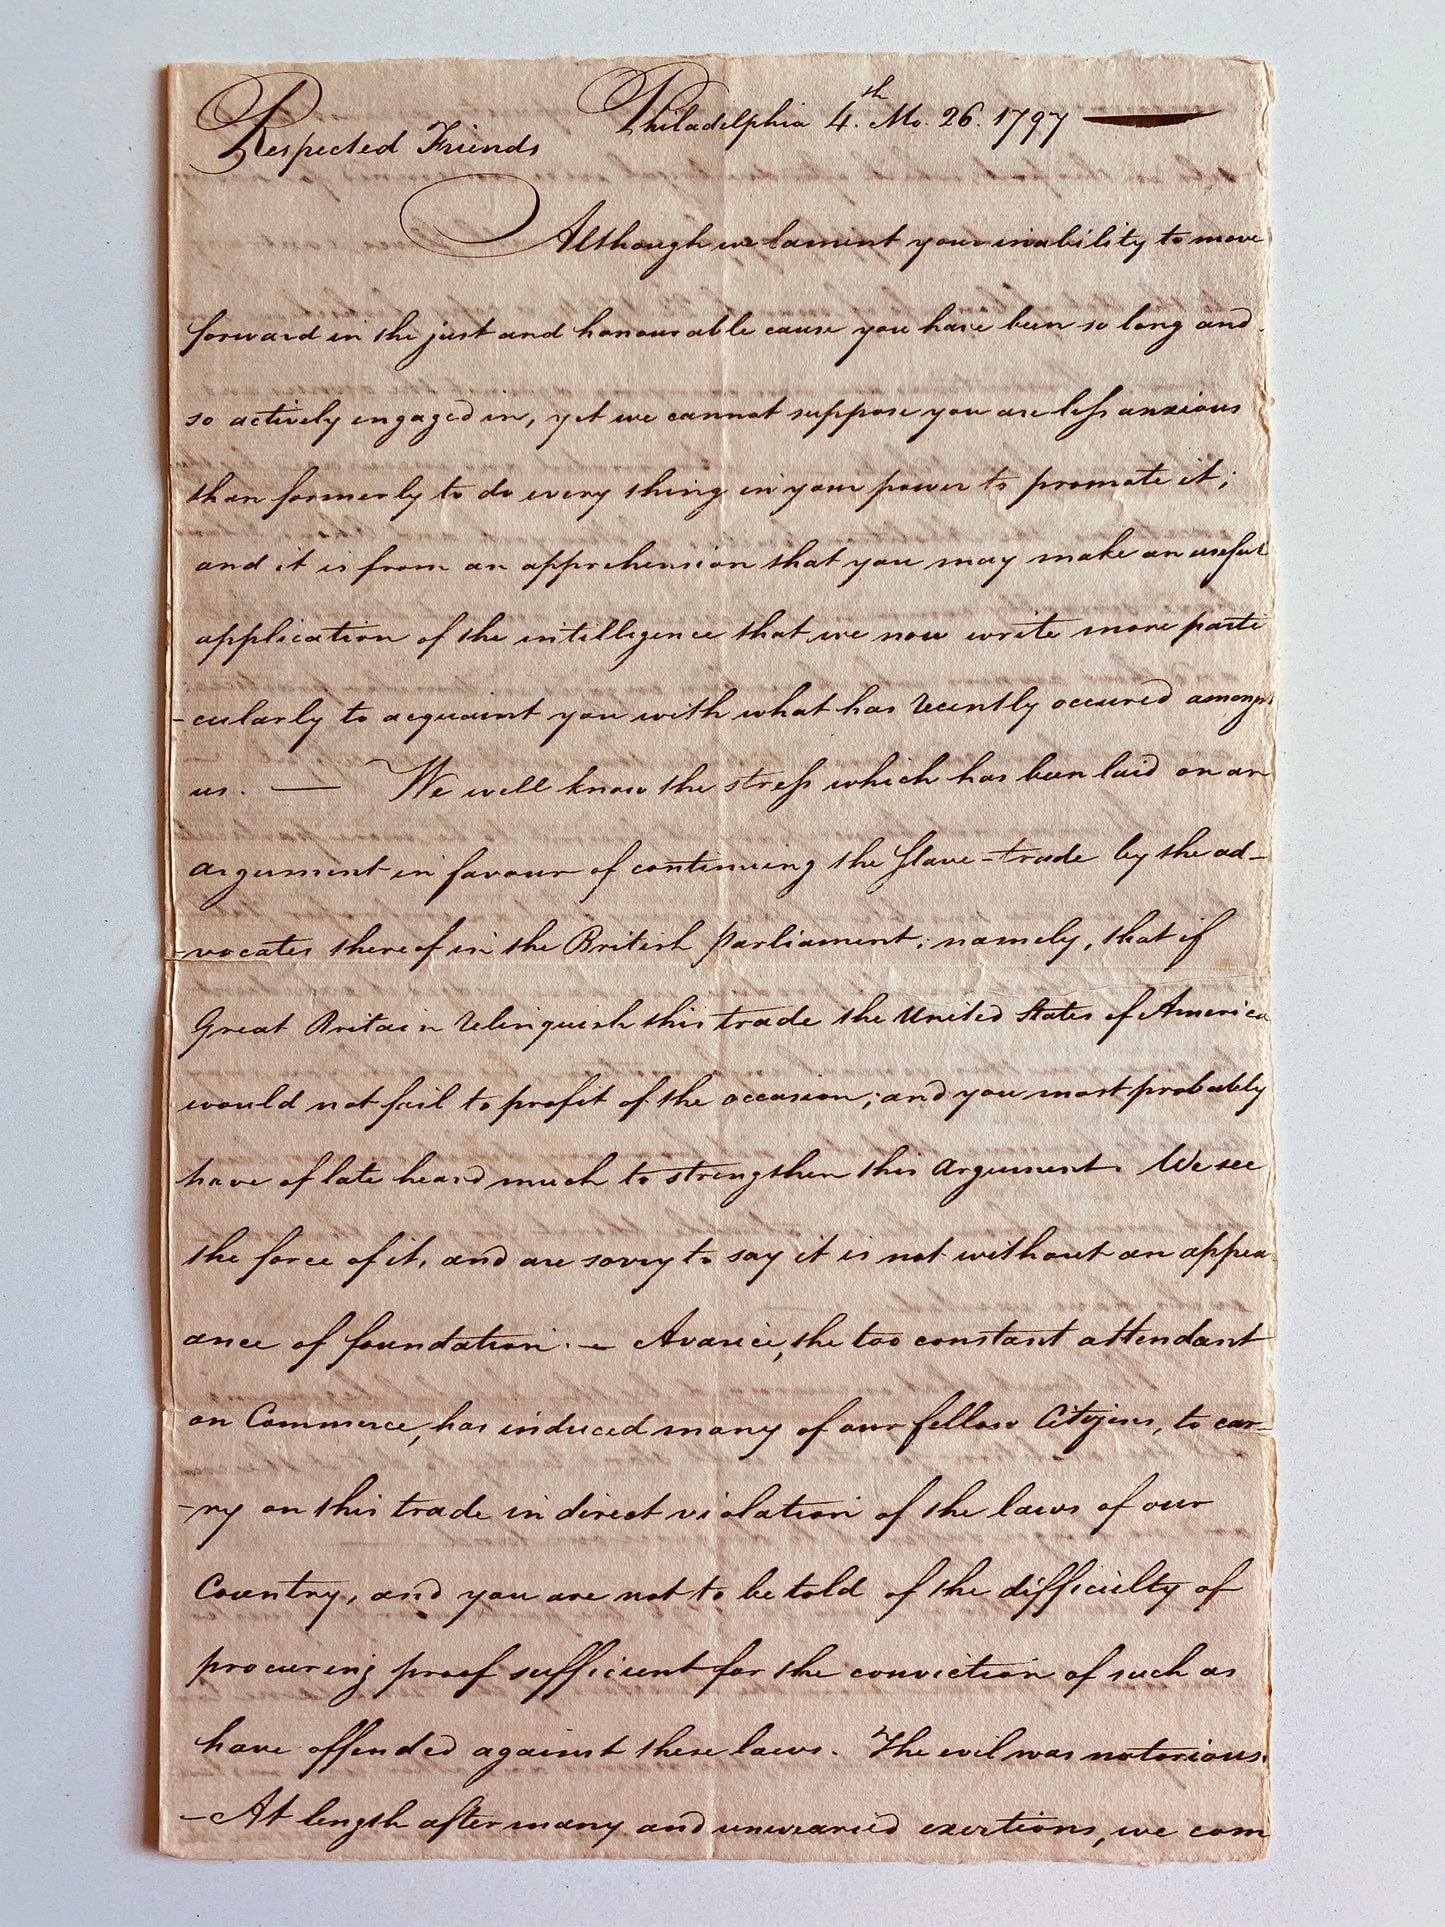 Philadelphia 4th. Mo. 26. 1797
Respected Friends
Although we lament your inability to move
forward in the just and honourable cause you have been so long and
so actively engaged in, yet we cannot suppose you are less anxious
than formerly to do every thing in your power to promote it;
and it is from an apprehension that you may make an useful
application of the intelligence that we now write more parti
-cularly to acquaint you with what has recently occured amongst
us. — We well know the stress which has been laid on an
argument in favour of continuing the Slave-trade by the ad-
-vocates thereof in the British Parliament; namely, that if
Great Britain relinquish this trade the United States of America
would not fail to profit of the occasion; and you most probably
have of late heard much to strengthen this Argument. We see
the force of it, and are sorry to say it is not without an appea
ance of foundation. — Avarice, the too constant attendant
on Commerce, has induced many of our fellow Citizens, to car-
-ry on this trade in direct violation of the laws of our
Country, and you are not to be told of the difficulty of
procuring proof sufficient for the conviction of such as
have offended against these laws. The evil was notorious.
-At length after many and unwearied exertions, we com